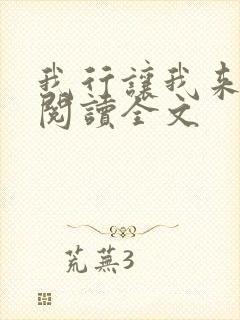 我行讓我来
閱讀全文
荒蕪3